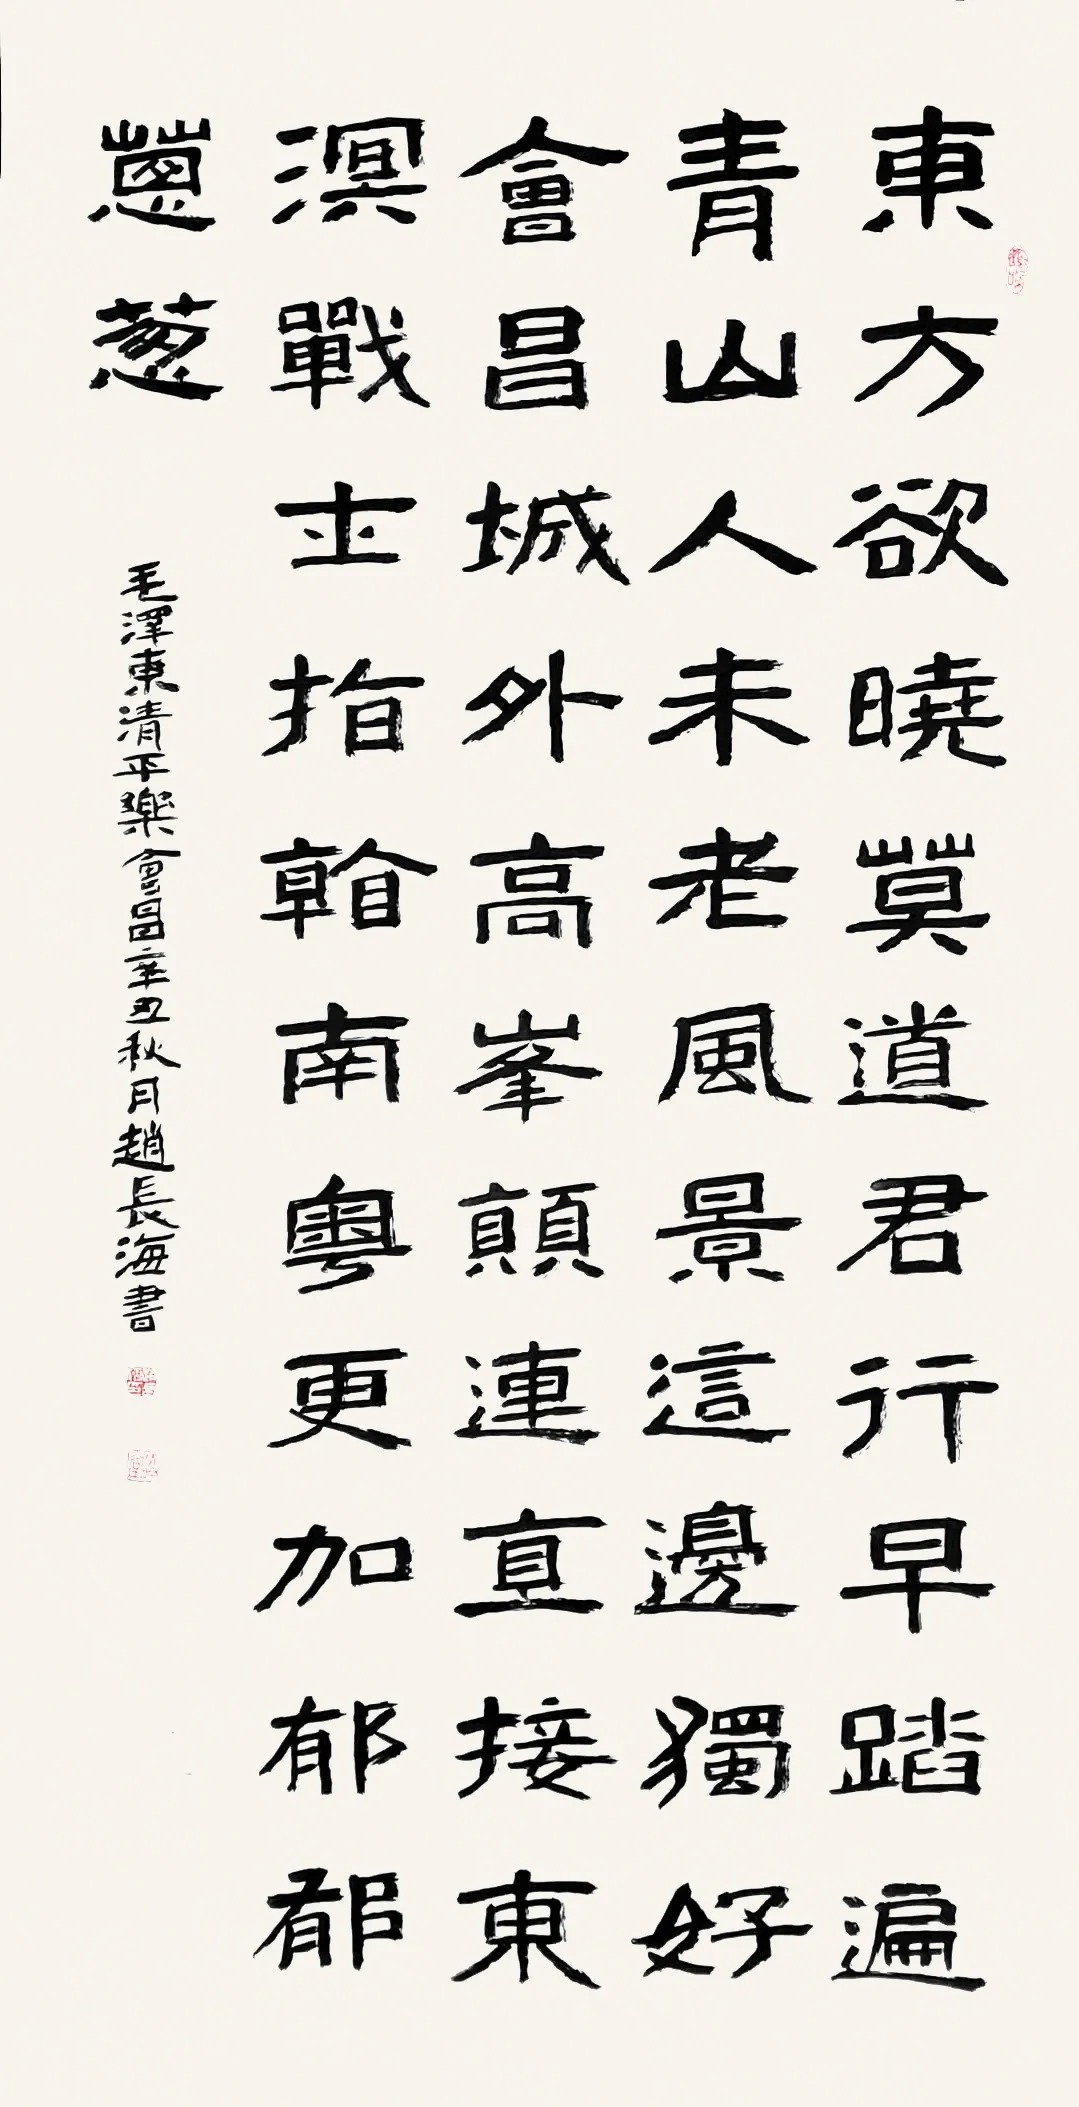 東方欲曉莫道君行早踏遍
青山人未老風景這邊獨好
會昌城外高峯顛連直接東
溟戰士指看南粵更加郁郁
蔥葱
毛澤東清平樂會昌辛丑秋月趙長海書